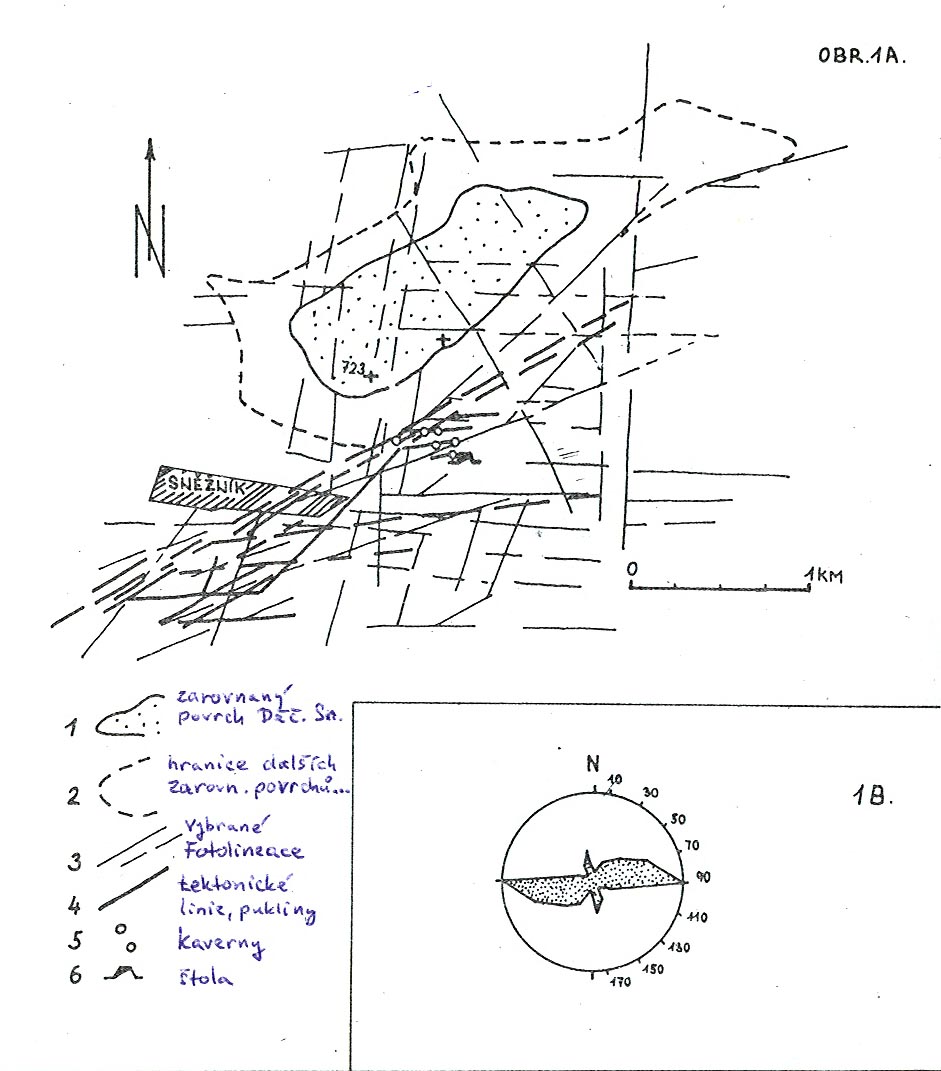 OBR.1A.
N
723
SNĚŽNÍK
0 1KM
1 zarovnaný
povrch Děč. Sn.
2 hranice dalších
zarovn. povrchů...
3 Vybrané
Fotolineace
4 tektonické
linie, pukliny
5 kaverny
6 štola
1B.
N
10
30
50
70
90
110
130
150
170